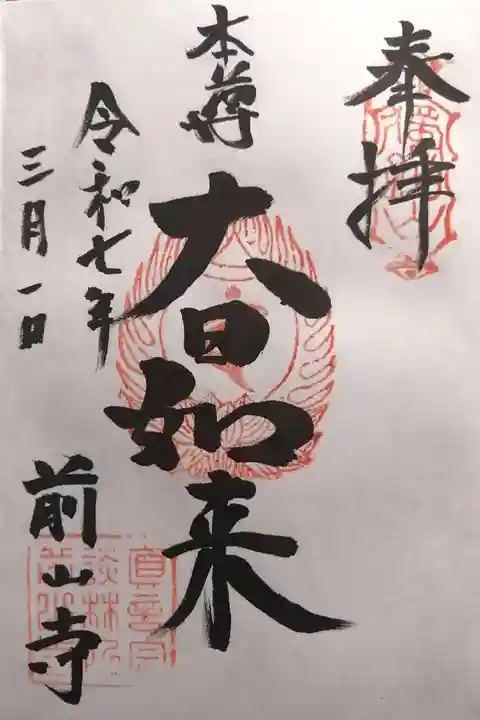 奉拝
本尊
大日如来
令和七年
三月一日
前山寺